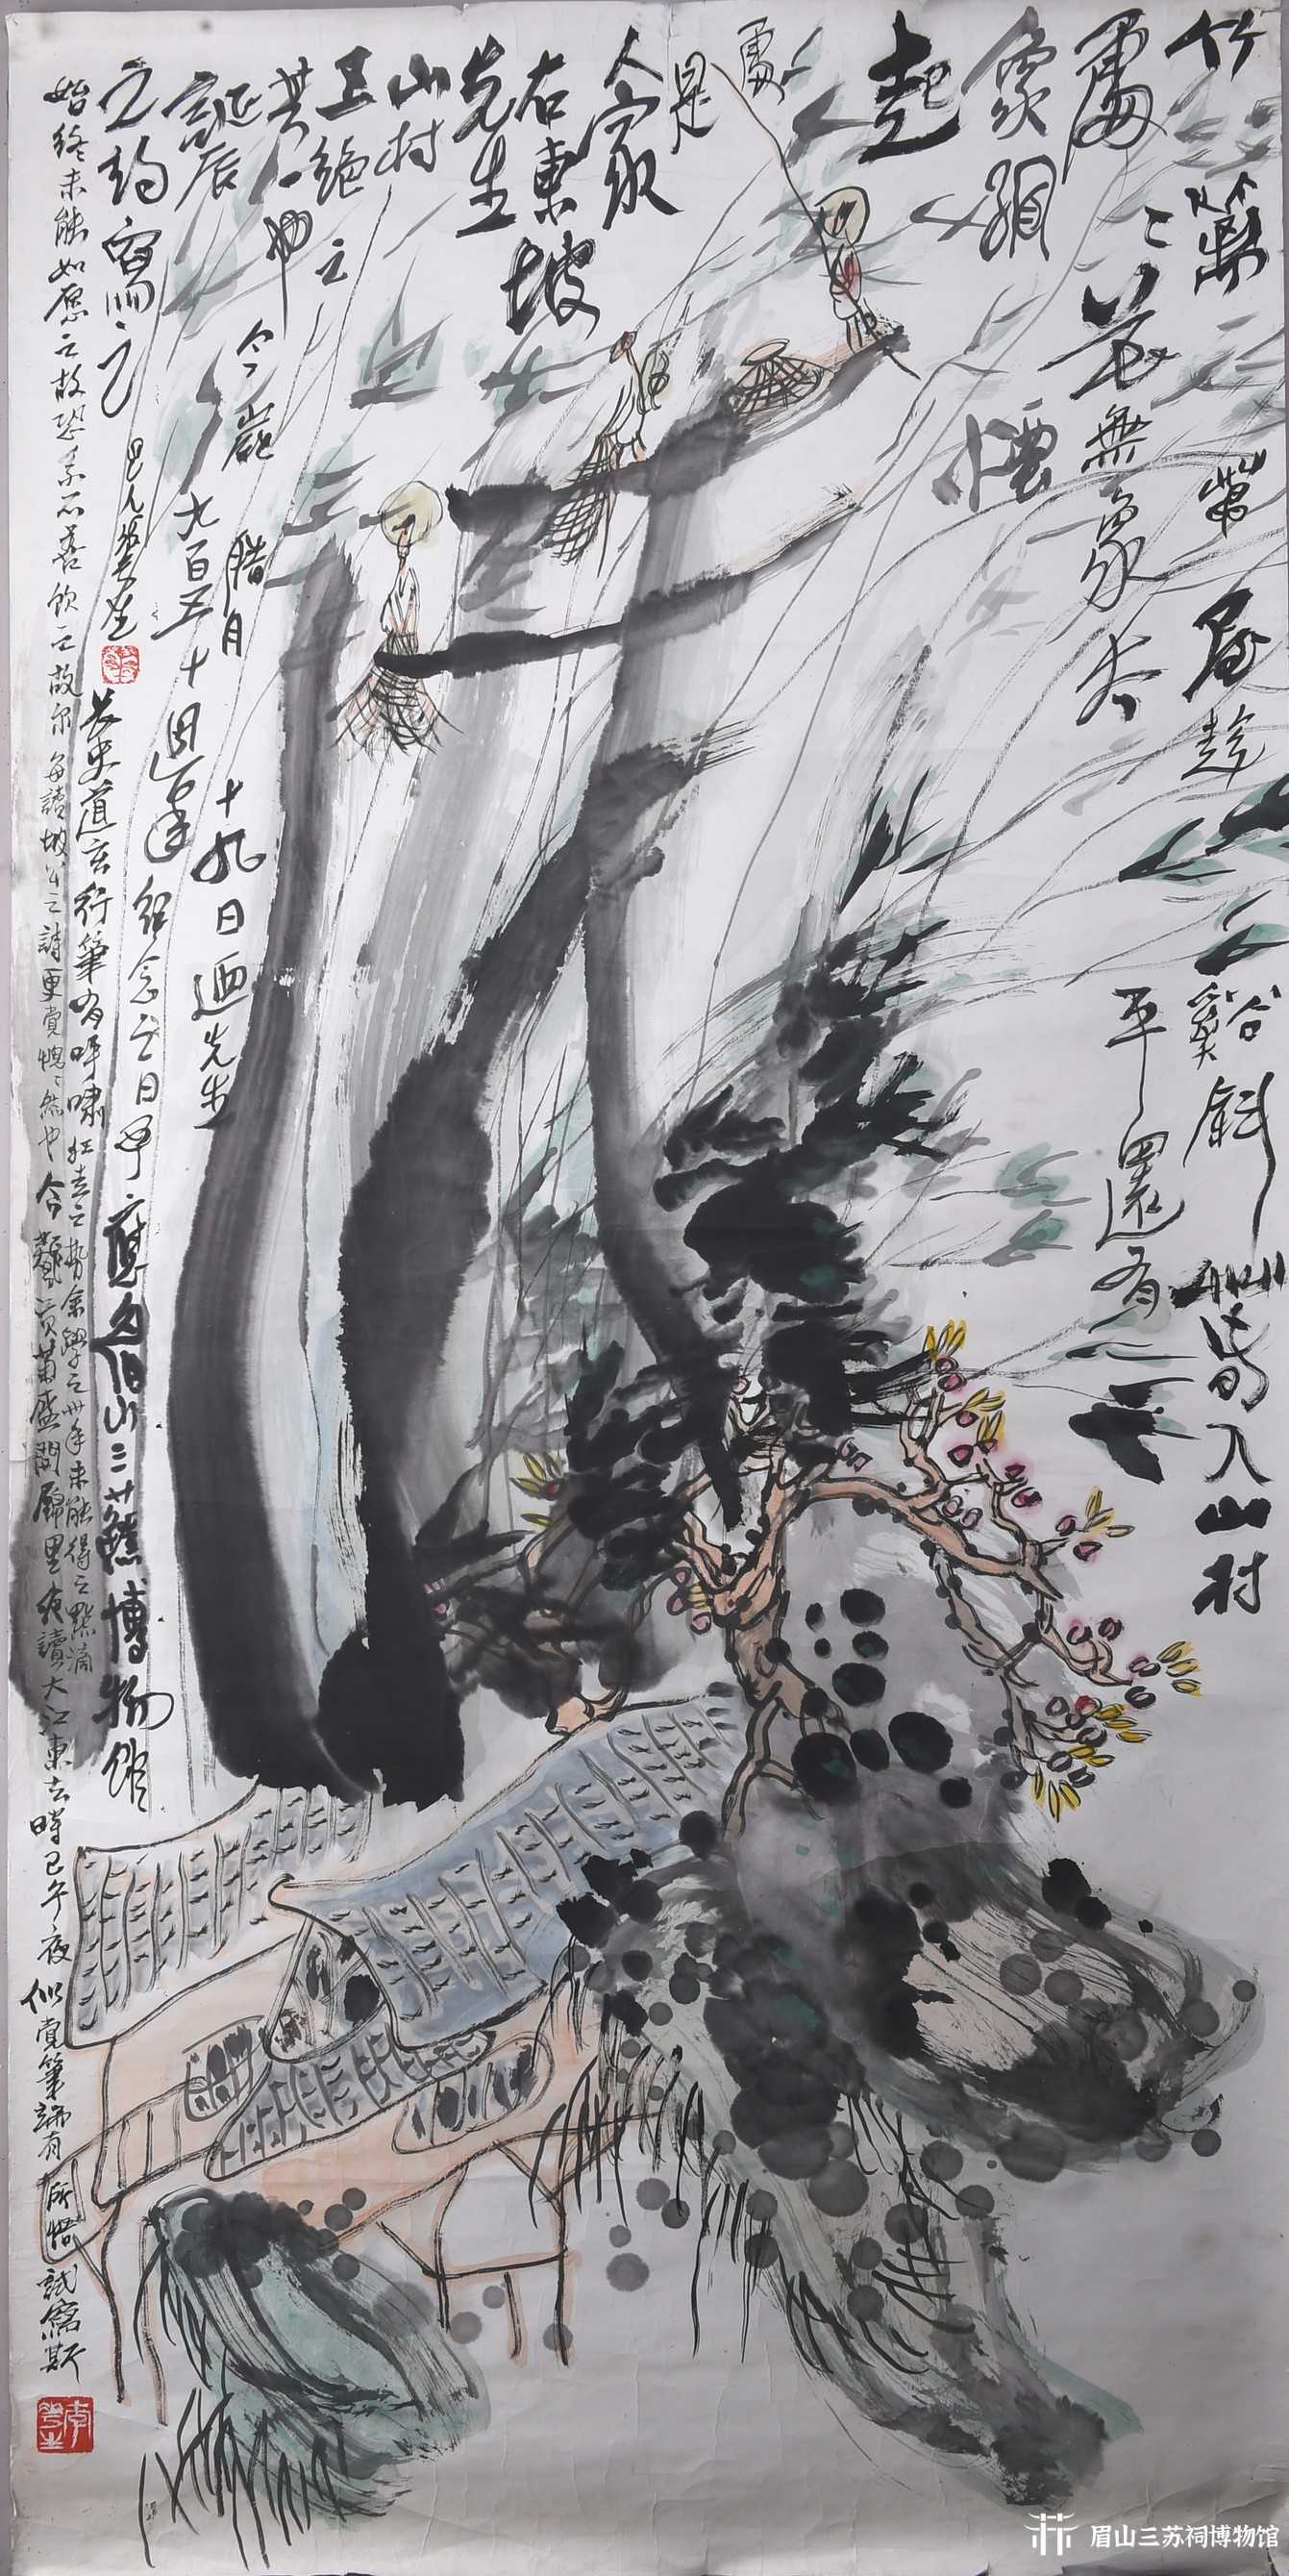 竹籬茅屋趁谿斜春入山村
處〻花無象太平還有
象孤煙
起
處
是
人家
右東坡
先生
山村
五絕之
其一也
今歲腊月十九日迺先生
誕辰九百五十周年紀念之日予應眉山三蘇博物館
之約寫之
巴人華生
長史道玄行筆有呼嘯狂走之勢余學之卅年未能得之點滴
始終未能如愿之故恐系不善飲之故尔每讀坡公之詩更覺愧〻然也今黄菊盛開錦里夜讀大江東去時已午夜似覺筆端有所悟試寫斯
李華生
眉山三苏祠博物馆